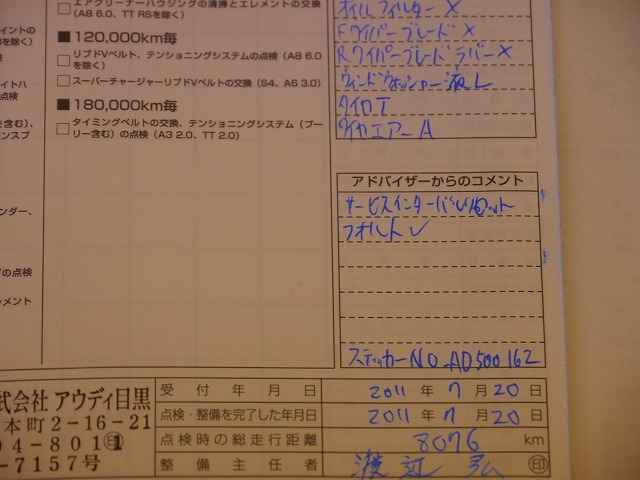 エアクリーナーハウジングの清掃とエレメントの交換
(A8 6.0、TT RSを除く)
■120,000km毎
□リブドVベルト、テンショニングシステムの点検 (A8 6.0
を除く)
□スーパーチャージャーリブドVベルトの交換 (S4、A6 3.0)
■180,000km毎
□タイミングベルトの交換、テンショニングシステム (プー
リー含む) の点検 (A3 2.0、TT 2.0)
イントの
を除く)
イトハ
点検
を含む)、
ンスプ
ンダー、
の点検
レメント
オイルフィルター X
Fワイパーブレード X
Rワイパーブレードラバー X
ウィンドウォッシャー液 L
タイヤ T
タイヤエアー A
アドバイザーからのコメント
サービスインターバルリセット
フォルト レ
ステッカーNO AD500162
式会社 アウディ目黒
本町2-16-21
04-8011
-7157号
受付年月日 2011年7月20日
点検・整備を完了した年月日 2011年7月20日
点検時の総走行距離 8076 km
整備主任者 渡辺 印